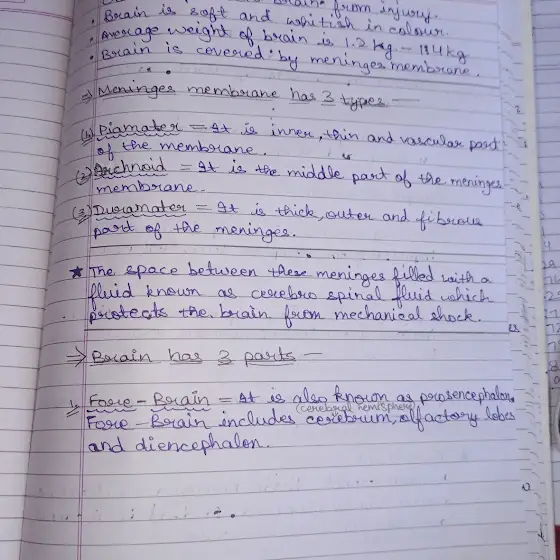 brain from injury.
• Brain is soft and whitish in colour.
• Average weight of brain is 1.2 kg - 1.4 kg
• Brain is covered by meninges membrane.
⇒ Meninges membrane has 3 types —
(1) Piamater = It is inner, thin and vascular part
of the membrane.
(2) Archnoid = It is the middle part of the meninges
membrane.
(3) Duramater = It is thick, outer and fibrous
part of the meninges.
★ The space between these meninges filled with a
fluid known as cerebro spinal fluid which
protects the brain from mechanical shock.
⇒ Brain has 3 parts —
1) Fore - Brain = It is also known as prosencephalon.
(cerebral hemisphere)
Fore - Brain includes cerebrum, olfactory lobes
and diencephalon.